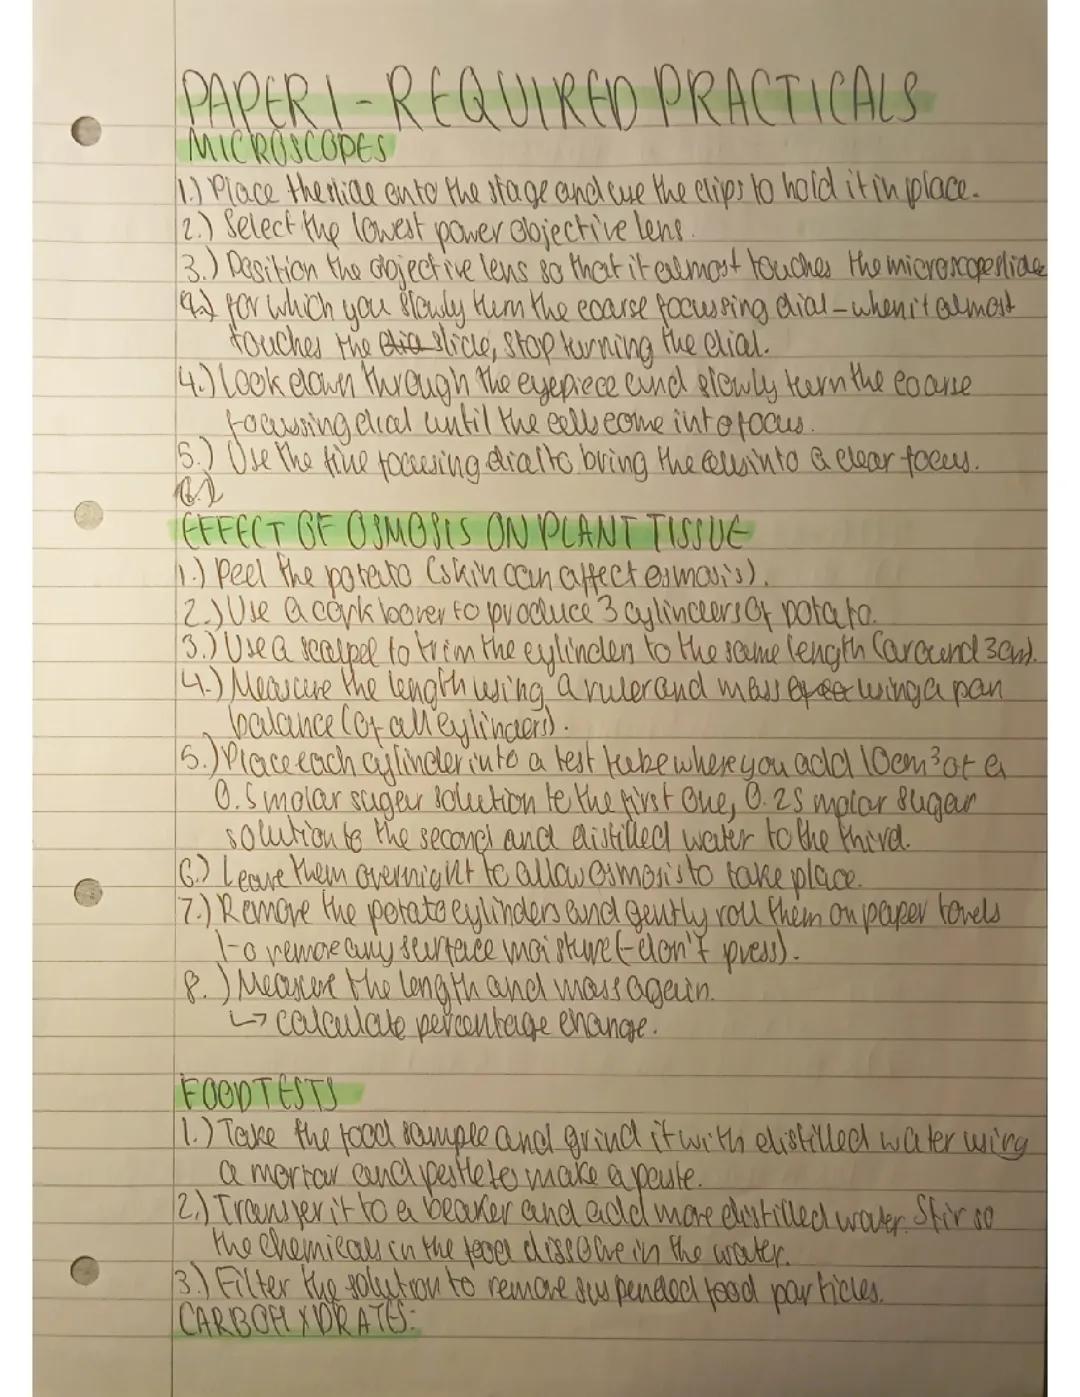 PAPER 1 - REQUIRED PRACTICALS
MICROSCOPES
1.) Place the slide onto the stage and use the clips to hold it in place.
2.) Select the lowest power objective lens.
3.) Position the objective lens so that it almost touches the microscope slide
4.) for which you slowly turn the coarse focussing dial - when it almost
touches the dia slide, stop turning the dial.
4.) Look down through the eyepiece and slowly turn the coarse
focussing dial until the cells come into focus.
5.) Use the fine focusing dial to bring the cells into a clear focus.
6.)
EFFECT OF OSMOSIS ON PLANT TISSUE
1.) Peel the potato (skin can affect osmosis).
2.) Use a cork borer to produce 3 cylinders of potato.
3.) Use a scalpel to trim the cylinders to the same length (around 3cm).
4.) Measure the length using a ruler and mass using a pan
balance (of all cylinders).
5.) Place each cylinder into a test tube where you add 10cm³ of a
0.5 molar sugar solution to the first one, 0.25 molar sugar
solution to the second and distilled water to the third.
6.) Leave them overnight to allow osmosis to take place.
7.) Remove the potato cylinders and gently roll them on paper towels
to remove any surface moisture (-don't press).
8.) Measure the length and mass again.
↳ calculate percentage change.
FOOD TESTS
1.) Take the food sample and grind it with distilled water using
a mortar and pestle to make a paste.
2.) Transfer it to a beaker and add more distilled water. Stir so
the chemicals in the food dissolve in the water.
3.) Filter the solution to remove suspended food particles.
CARBOHYDRATES: